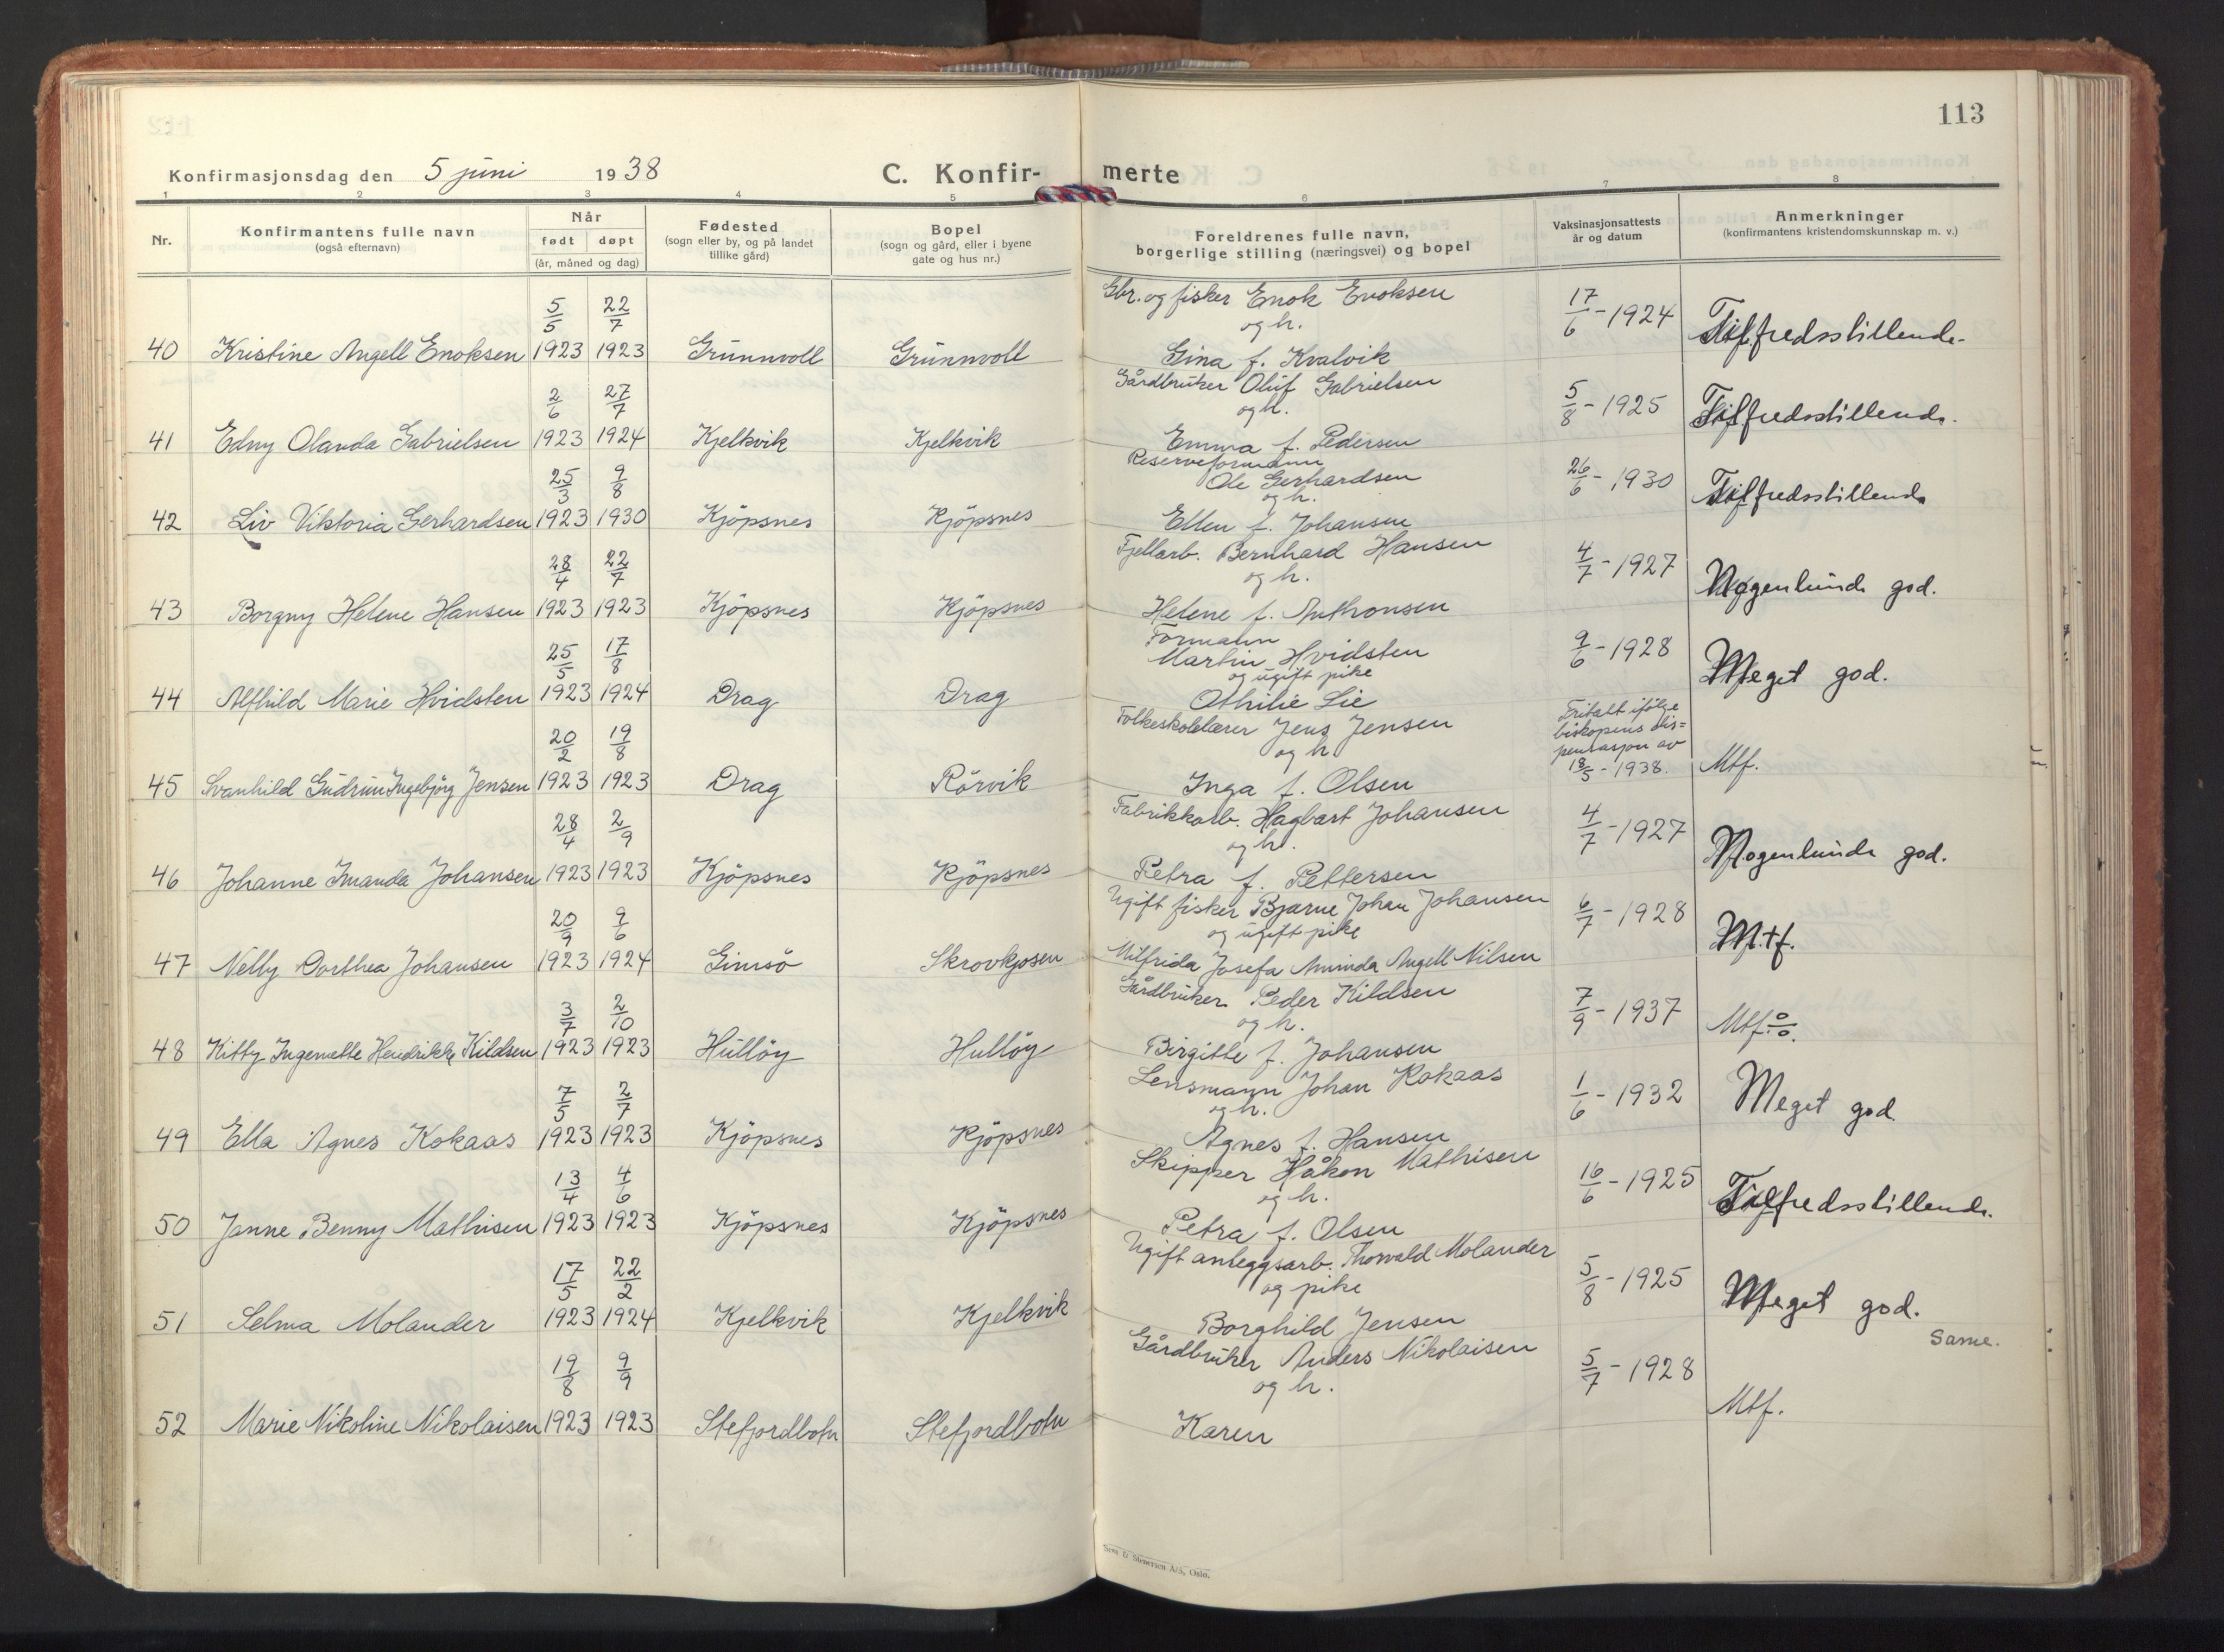 113
Konfirmasjonsdag den 5 juni 1938 C. Konfir- merte
1 2 3 4 5 6 7 8
Nr.
Konfirmantens fulle navn
(også efternavn)
Når
født døpt
(år, måned og dag)
Fødested
(sogn eller by, og på landet
tillike gård)
Bopel
(sogn og gård, eller i byene
gate og hus nr.)
Foreldrenes fulle navn,
borgerlige stilling (næringsvei) og bopel
Vaksinasjonsattests
år og datum
Anmerkninger
(konfirmantens kristendomskunnskap m. v.)
5/5 22/7 Gbr. og fisker Enok Enoksen 17/6-1924
og h. Tilfredsstillende.
40 Kristine Angell Enoksen 1923 1923 Grunnvoll Grunnvoll Gina f. Kvalvik
2/6 27/7 Gårdbruker Oluf Gabrielsen 5/8-1925
og h. Tilfredsstillende.
41 Edny Olanda Gabrielsen 1923 1924 Kjelkvik Kjelkvik Emma f. Pedersen
Reserveformann
25/3 9/8 Ole Gerhardsen 26/6-1930
og h. Tilfredsstillende
42 Liv Viktoria Gerhardsen 1923 1930 Kjöpsnes Kjöpsnes Ellen f. Johansen
28/4 22/7 Fjellarb. Bernhard Hansen 4/7-1927
og h. Nogenlunde god.
43 Borgny Helene Hansen 1923 1923 Kjöpsnes Kjöpsnes Helene f. Anthonsen
Formann
25/5 17/8 Martin Hvidsten 9/6-1928
og ugift pike Meget god.
44 Alfhild Marie Hvidsten 1923 1924 Drag Drag Othilie Lie
20/2 19/8 Folkeskolelærer Jens Jensen Fritatt ifölge
biskopens dis=
og h. pensasjon av
18/5-1938. Mtf.
45 Svanhild Gudrun Ingebjörg Jensen 1923 1923 Drag Rörvik Inga f. Olsen
28/4 2/9 Fabrikkarb. Hagbart Johansen 4/7-1927
og h. Nogenlunde god.
46 Johanne Imanda Johansen 1923 1923 Kjöpsnes Kjöpsnes Petra f. Pettersen
20/9 9/6 Ugift fisker Bjarne Johan Johansen 6/7-1928
og ugift pike M.tf.
47 Nelly Dorthea Johansen 1923 1924 Gimsö Skrovkjosen Milfrida Josefa Aminda Angell Nilsen
3/7 2/10 Gårdbruker Peder Kildsen 7/9-1937
og h. Mtf. ÷
48 Kitty Ingenette Hendrikke Kildsen 1923 1923 Hullöy Hullöy Birgitte f. Johansen
7/5 2/7 Lensmann Johan Kokaas 1/6-1932
og h. Meget god
49 Ella Agnes Kokaas 1923 1923 Kjöpsnes Kjöpsnes Agnes f. Hansen
13/4 4/6 Skipper Håkon Mathisen 16/6-1925
og h. Tilfredsstillende.
50 Janne Benny Mathisen 1923 1923 Kjöpsnes Kjöpsnes Petra f. Olsen
17/5 22/2 Ugift anleggsarb. Thorvald Molander 5/8-1925
og pike Meget god.
51 Selma Molander 1923 1924 Kjelkvik Kjelkvik Borghild Jensen
Same.
19/8 9/9 Gårdbruker Anders Nikolaisen 5/7-1928
og h. Mtf.
52 Marie Nikoline Nikolaisen 1923 1923 Stefjordbotn Stefjordbotn Karen
Sem & Stenersen A/S, Oslo.